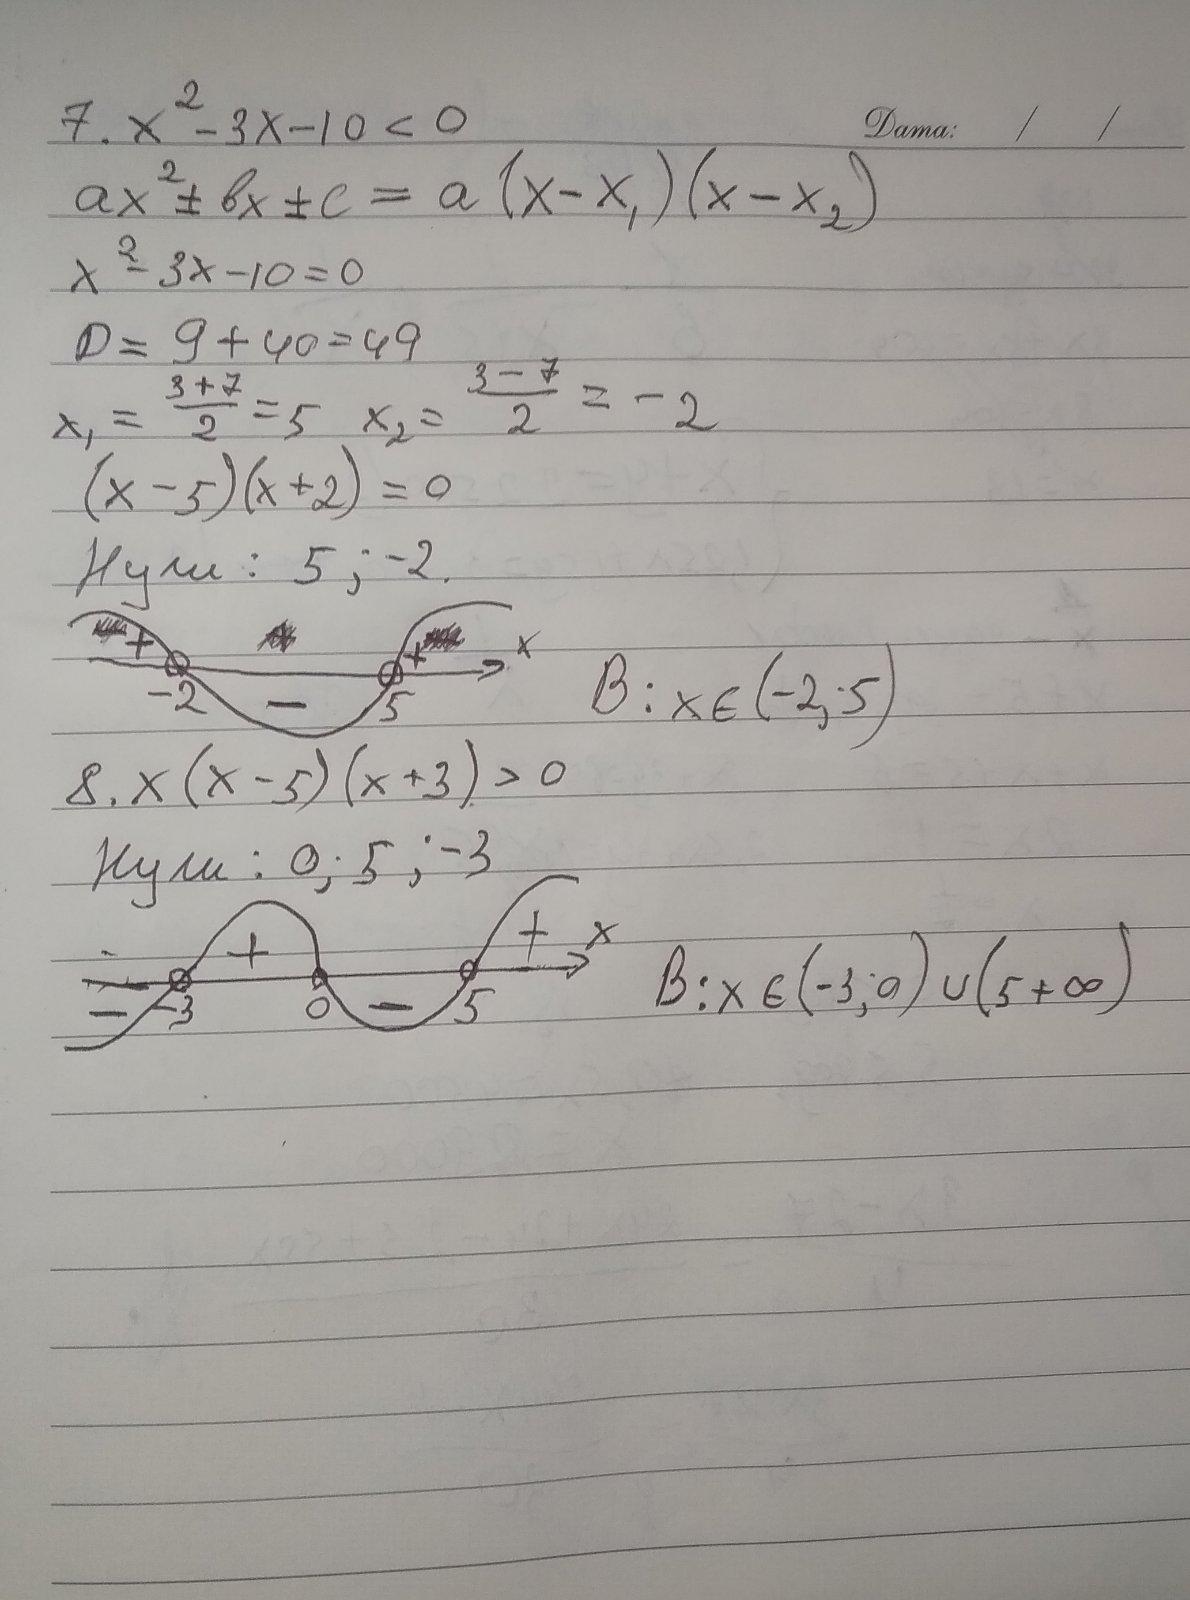 7. x² - 3x - 10 < 0
Дата: / /
ax² ± bx ± c = a (x - x₁)(x - x₂)
x² - 3x - 10 = 0
D = 9 + 40 = 49
x₁ = (3+7)/2 = 5 x₂ = (3-7)/2 = -2
(x - 5)(x + 2) = 0
Нули: 5; -2.
+ + x
-2 - 5
В: x ∈ (-2; 5)
8. x (x - 5) (x + 3) > 0
Нули: 0; 5; -3
+ + x
- -3 0 - 5
В: x ∈ (-3; 0) ∪ (5 + ∞)